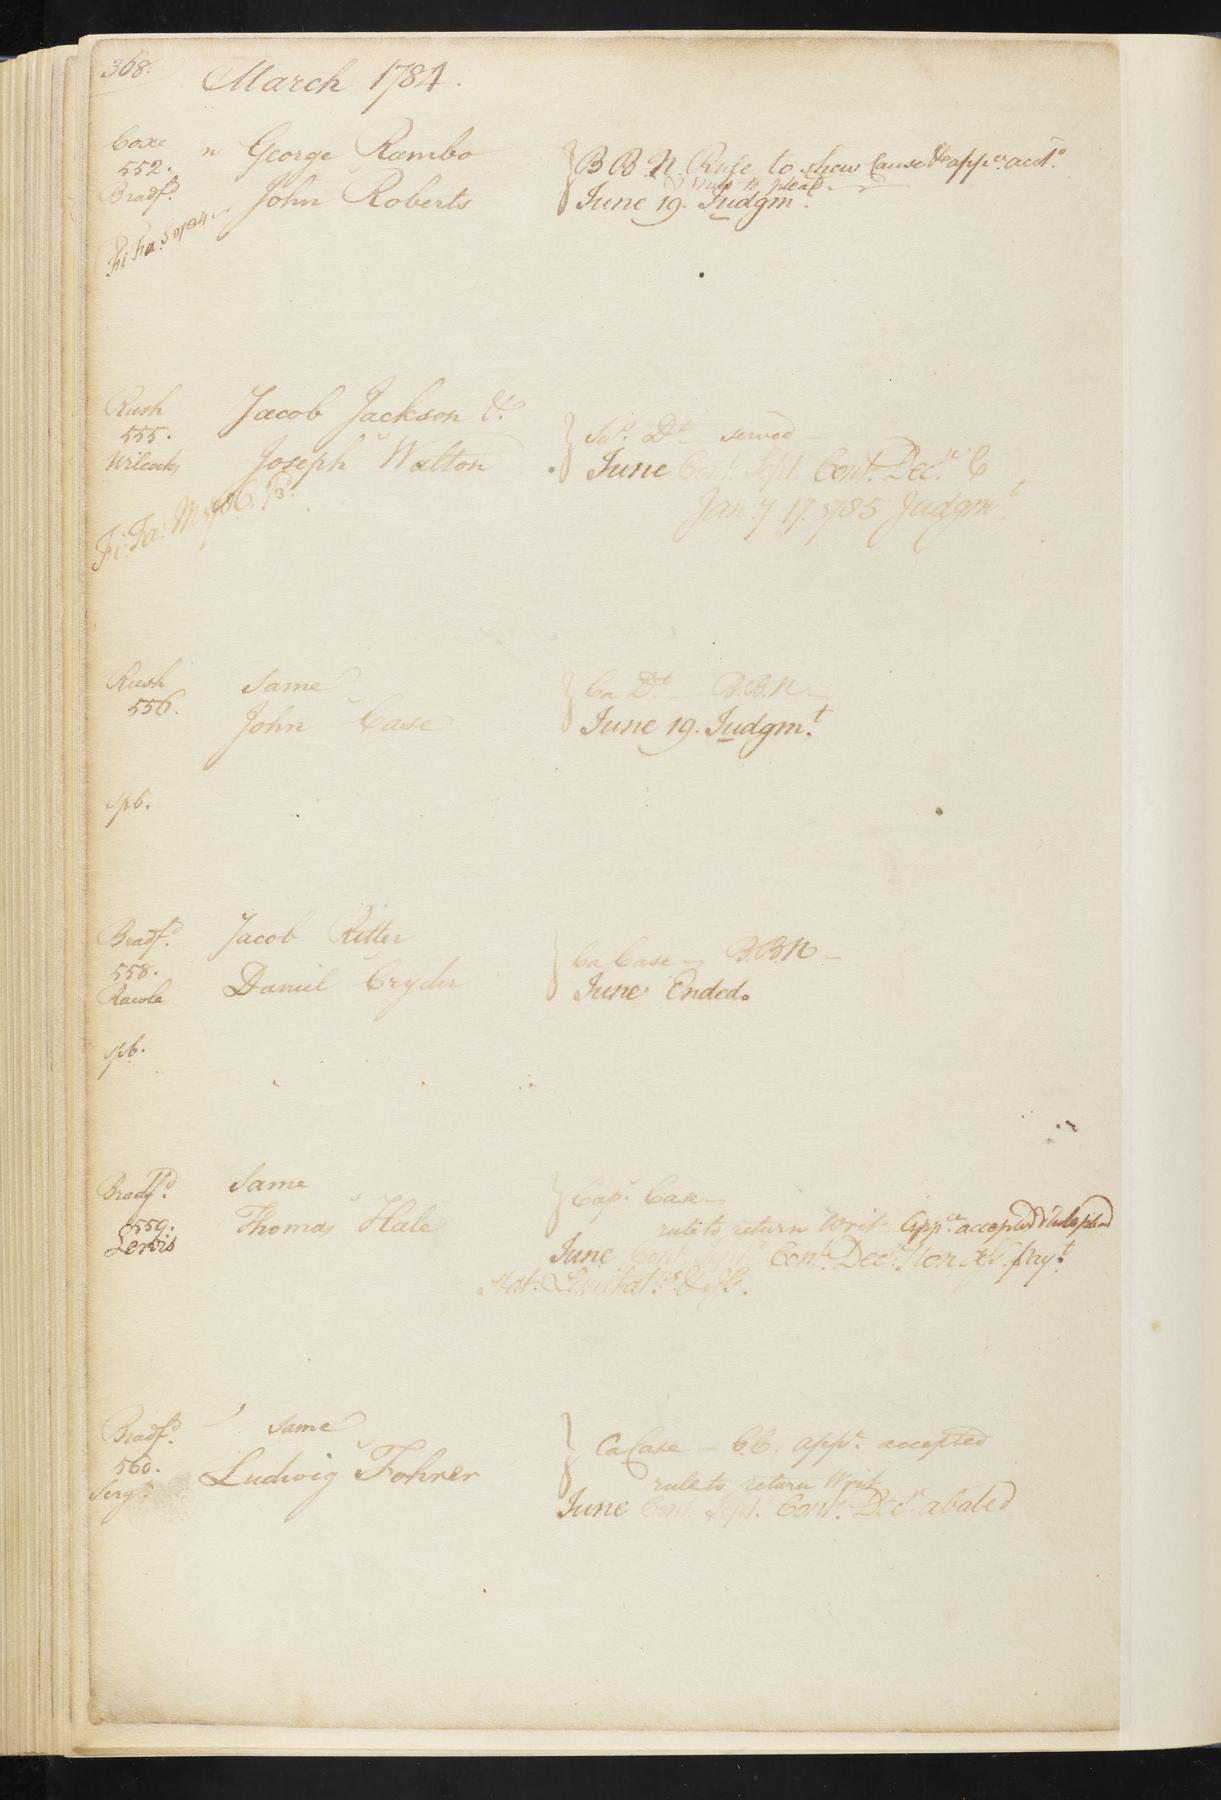 368.
March 1784.
Coxe
552.
Bradf.d
Fi Fa S 1784
George Rambo
John Roberts
B B. N. Rule to show Cause & app.ce acc.d
& rule to plead
June 19. Judgm.t
Rush
555.
Wilcocks
Fi: Fa: M 1786.
Jacob Jackson &c
Joseph Walton
D.t served
June Cont. Sept. Cont. Dec.r C
Jan.y 17. 1785 Judgm.t
Rush
556.
Same
John Case
Ca D.t B.B.N
June 19. Judgm.t
spb.
Bradf.d
558.
Rawle
Jacob Ritter
Daniel Cryder
Ca Case B.B.N
June Ended.
spb.
Bradf.d
559.
Lewis
Same
Thomas Hale
Cap.s Case
rule to return Writ App.ce accepted & rule plead
June Cont. Sept. Cont. Dec.r Non pay.t
Stat. Limitat.ns &
Bradf.d
560.
Serg.t
Same
Ludwig Fohrer
Ca Case C.C. app.ce accepted
rule to return Writ
June Cont. Sept. Cont. Dec.r abated